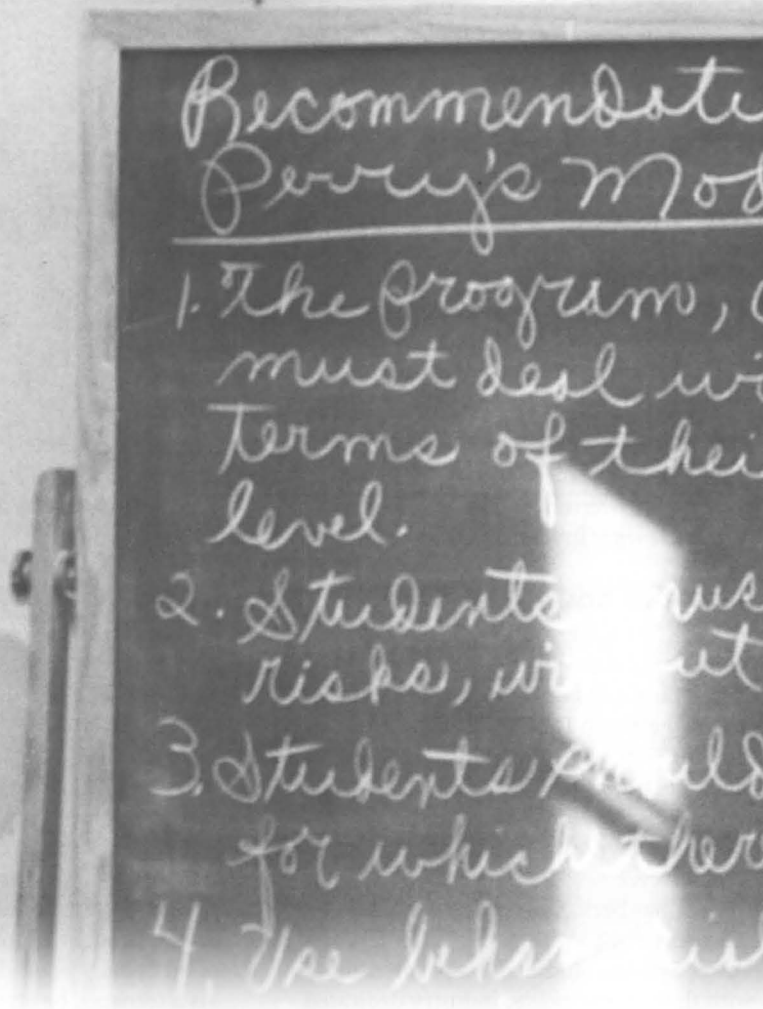 Recommendati
Perry's Mod
1. The program,
must deal wi
terms of thei
level.
2. Students mus
risks, wi ut
3. Students should
for which ther
4. Use